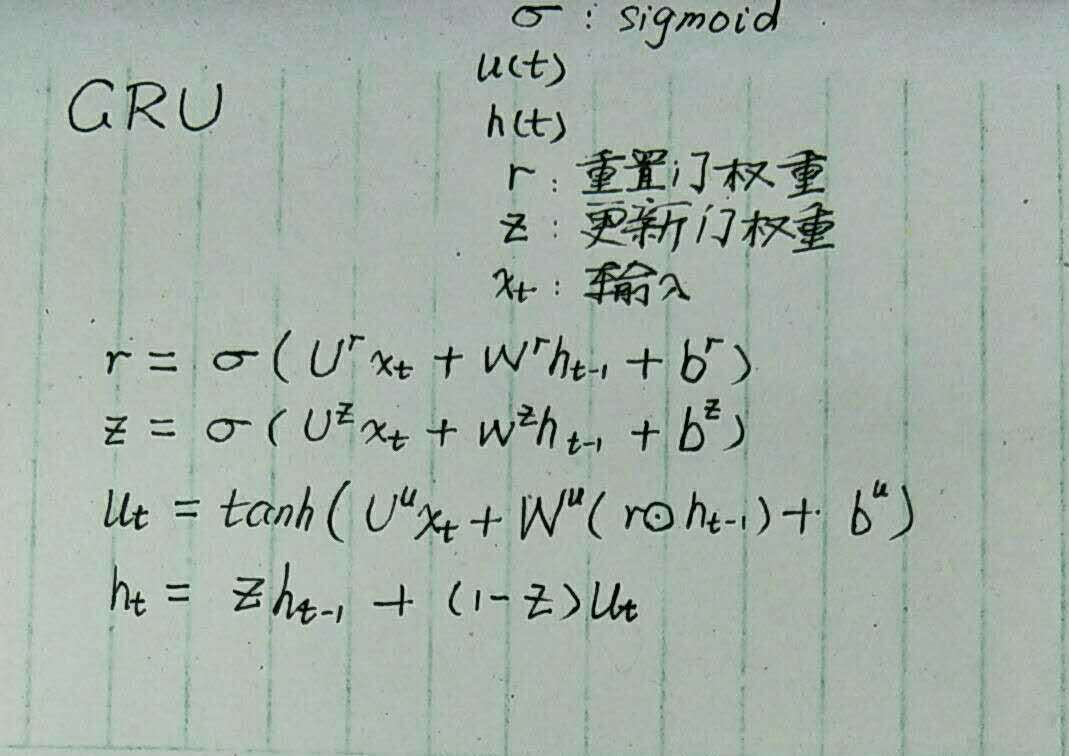 σ : sigmoid
u(t)
GRU
h(t)
r : 重置门权重
z : 更新门权重
xₜ : 输入
r = σ ( Uʳxₜ + Wʳhₜ₋₁ + bʳ )
z = σ ( Uᶻxₜ + Wᶻhₜ₋₁ + bᶻ )
uₜ = tanh ( Uᵘxₜ + Wᵘ( r⊙hₜ₋₁ ) + bᵘ )
hₜ = zhₜ₋₁ + (1-z)uₜ